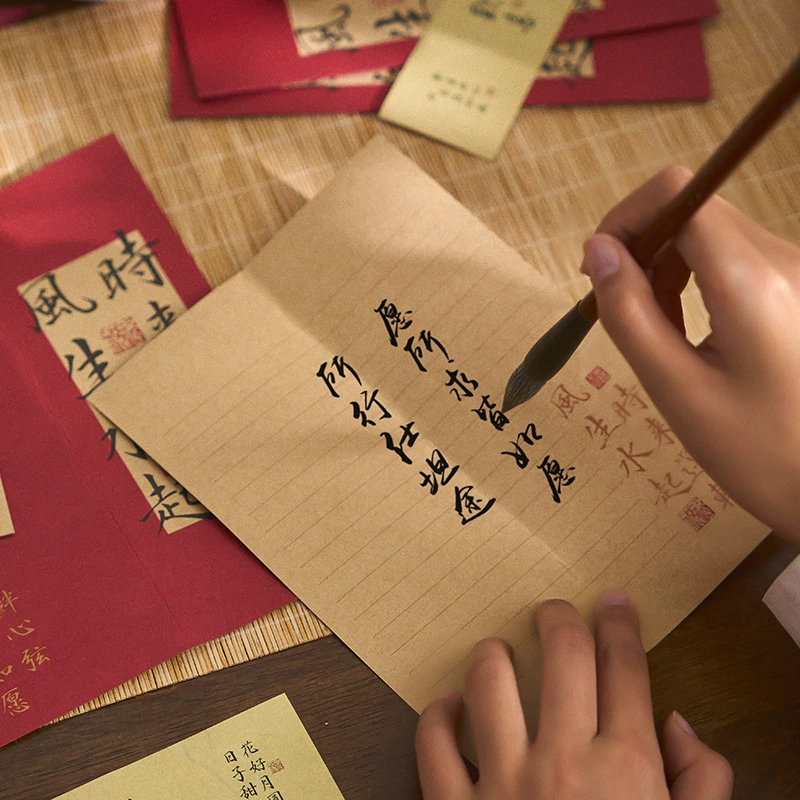 時来
風生水起
愿所求皆如愿
所行仕坦途
時来運轉
風生水起
心弦
愿
花好月圓
日子甜